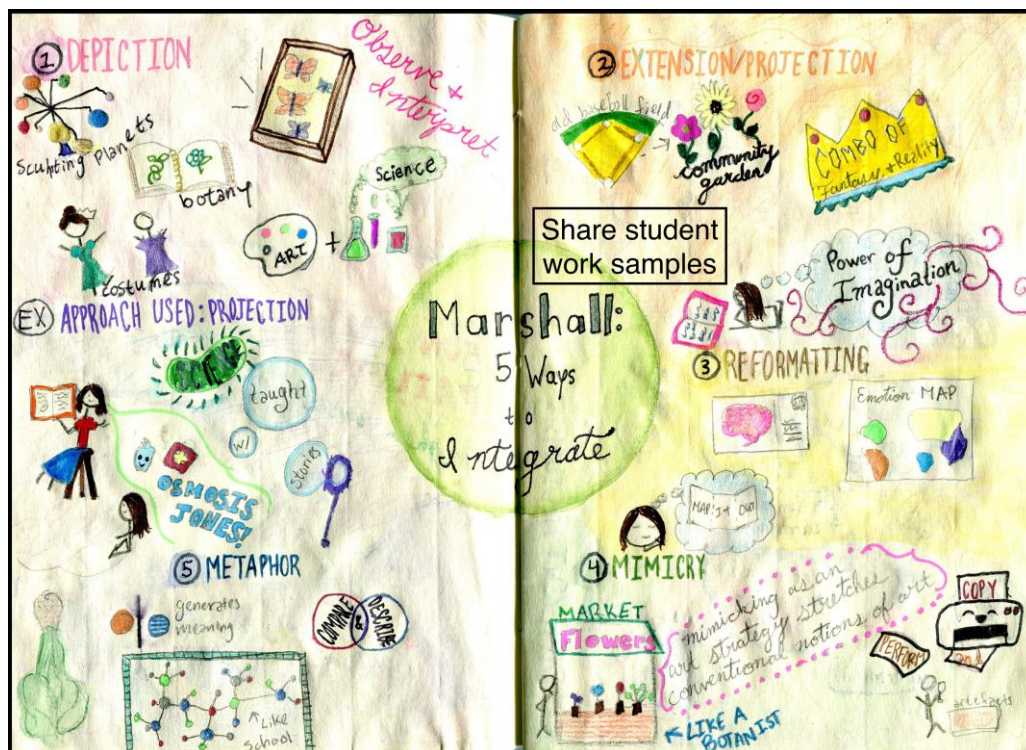 ① DEPICTION
Observe +
Interpret
Sculpting Planets
botany
Science
ART
+
costumes
EX APPROACH USED: PROJECTION
SCIENCE
taught
w/
stories
OSMOSIS
JONES!
⑤ METAPHOR
generates
meaning
COMPARE & DESCRIBE
LIKE
School
Share student
work samples
Marshall:
5 Ways
to
Integrate
② EXTENSION/PROJECTION
old baseball field
community
garden
COMBO OF
Fantasy + Reality
Power of
Imagination
③ REFORMATTING
Emotion MAP
MAP IT OUT
④ MIMICRY
MARKET
Flowers
mimicking as an
art strategy stretches
conventional notions of art
LIKE A
BOTANIST
COPY
PERFORM
artefacts